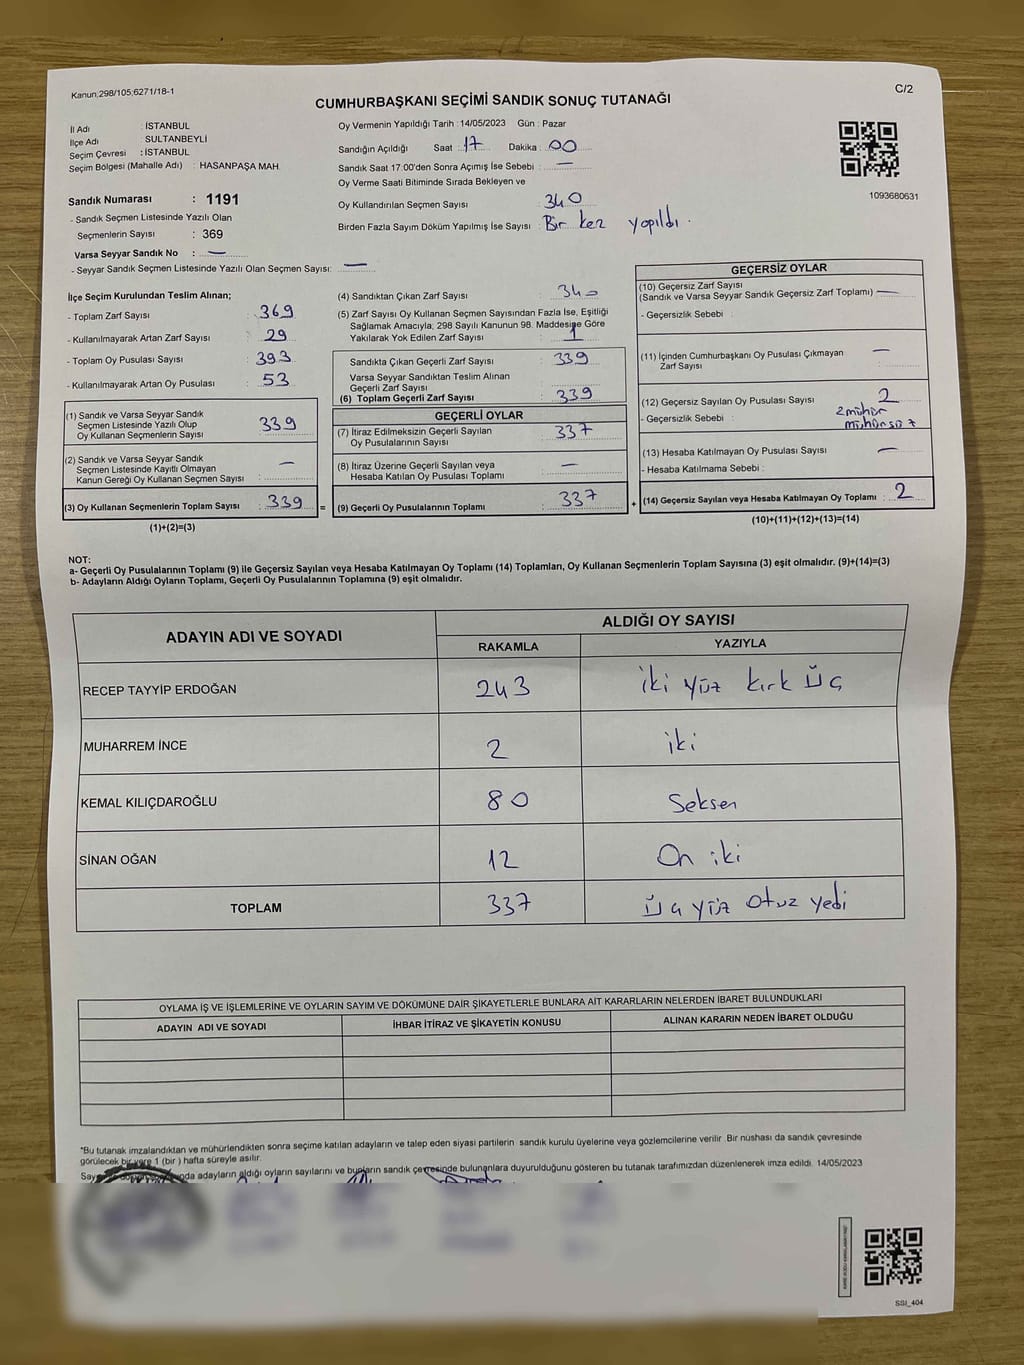 Kanun;298/105;6271/18-1
C/2
CUMHURBAŞKANI SEÇİMİ SANDIK SONUÇ TUTANAĞI
İl Adı : İSTANBUL
İlçe Adı : SULTANBEYLİ
Seçim Çevresi : İSTANBUL
Seçim Bölgesi (Mahalle Adı) : HASANPAŞA MAH.
Sandık Numarası : 1191
- Sandık Seçmen Listesinde Yazılı Olan
Seçmenlerin Sayısı : 369
Varsa Seyyar Sandık No : —
- Seyyar Sandık Seçmen Listesinde Yazılı Olan Seçmen Sayısı: —
Oy Vermenin Yapıldığı Tarih : 14/05/2023 Gün : Pazar
Sandığın Açıldığı Saat : 17 Dakika : 00
Sandık Saat 17:00'den Sonra Açımış İse Sebebi : —
Oy Verme Saati Bitiminde Sırada Bekleyen ve
Oy Kullandırılan Seçmen Sayısı : 340
Birden Fazla Sayım Döküm Yapılmış İse Sayısı : Bir kez yapıldı.
1093680631
İlçe Seçim Kurulundan Teslim Alınan;
- Toplam Zarf Sayısı : 369
- Kullanılmayarak Artan Zarf Sayısı : 29
- Toplam Oy Pusulası Sayısı : 393
- Kullanılmayarak Artan Oy Pusulası : 53
(1) Sandık ve Varsa Seyyar Sandık
Seçmen Listesinde Yazılı Olup
Oy Kullanan Seçmenlerin Sayısı : 339
(2) Sandık ve Varsa Seyyar Sandık
Seçmen Listesinde Kayıtlı Olmayan
Kanun Gereği Oy Kullanan Seçmen Sayısı : —
(3) Oy Kullanan Seçmenlerin Toplam Sayısı : 339 =
(1)+(2)=(3)
(4) Sandıktan Çıkan Zarf Sayısı : 340
(5) Zarf Sayısı Oy Kullanan Seçmen Sayısından Fazla İse, Eşitliği
Sağlamak Amacıyla, 298 Sayılı Kanunun 98. Maddesine Göre
Yakılarak Yok Edilen Zarf Sayısı : 1
Sandıkta Çıkan Geçerli Zarf Sayısı : 339
Varsa Seyyar Sandıktan Teslim Alınan
Geçerli Zarf Sayısı :
(6) Toplam Geçerli Zarf Sayısı : 339
GEÇERLİ OYLAR
(7) İtiraz Edilmeksizin Geçerli Sayılan
Oy Pusulalarının Sayısı : 337
(8) İtiraz Üzerine Geçerli Sayılan veya
Hesaba Katılan Oy Pusulası Toplamı : —
(9) Geçerli Oy Pusulalarının Toplamı : 337 +
GEÇERSİZ OYLAR
(10) Geçersiz Zarf Sayısı
(Sandık ve Varsa Seyyar Sandık Geçersiz Zarf Toplamı) —
- Geçersizlik Sebebi :
(11) İçinden Cumhurbaşkanı Oy Pusulası Çıkmayan : —
Zarf Sayısı
(12) Geçersiz Sayılan Oy Pusulası Sayısı : 2
- Geçersizlik Sebebi : 2 mühür
mühürsüz
(13) Hesaba Katılmayan Oy Pusulası Sayısı : —
- Hesaba Katılmama Sebebi :
(14) Geçersiz Sayılan veya Hesaba Katılmayan Oy Toplamı : 2
(10)+(11)+(12)+(13)=(14)
NOT:
a- Geçerli Oy Pusulalarının Toplamı (9) ile Geçersiz Sayılan veya Hesaba Katılmayan Oy Toplamı (14) Toplamları, Oy Kullanan Seçmenlerin Toplam Sayısına (3) eşit olmalıdır. (9)+(14)=(3)
b- Adayların Aldığı Oyların Toplamı, Geçerli Oy Pusulalarının Toplamına (9) eşit olmalıdır.
ADAYIN ADI VE SOYADI
ALDIĞI OY SAYISI
RAKAMLA YAZIYLA
RECEP TAYYİP ERDOĞAN 243 iki yüz kırk üç
MUHARREM İNCE 2 iki
KEMAL KILIÇDAROĞLU 80 Seksen
SİNAN OĞAN 12 On iki
TOPLAM 337 üç yüz otuz yedi
OYLAMA İŞ VE İŞLEMLERİNE VE OYLARIN SAYIM VE DÖKÜMÜNE DAİR ŞİKAYETLERLE BUNLARA AİT KARARLARIN NELERDEN İBARET BULUNDUKLARI
ADAYIN ADI VE SOYADI İHBAR İTİRAZ VE ŞİKAYETİN KONUSU ALINAN KARARIN NEDEN İBARET OLDUĞU
*Bu tutanak imzalandıktan ve mühürlendikten sonra seçime katılan adayların ve talep eden siyasi partilerin sandık kurulu üyelerine veya gözlemcilerine verilir. Bir nüshası da sandık çevresinde
görülecek bir yere 1 (bir) hafta süreyle asılır.
adayların aldığı oyların sayılarını ve bunların sandık çevresinde bulunanlara duyurulduğunu gösteren bu tutanak tarafımızdan düzenlenerek imza edildi. 14/05/2023
SSI_404